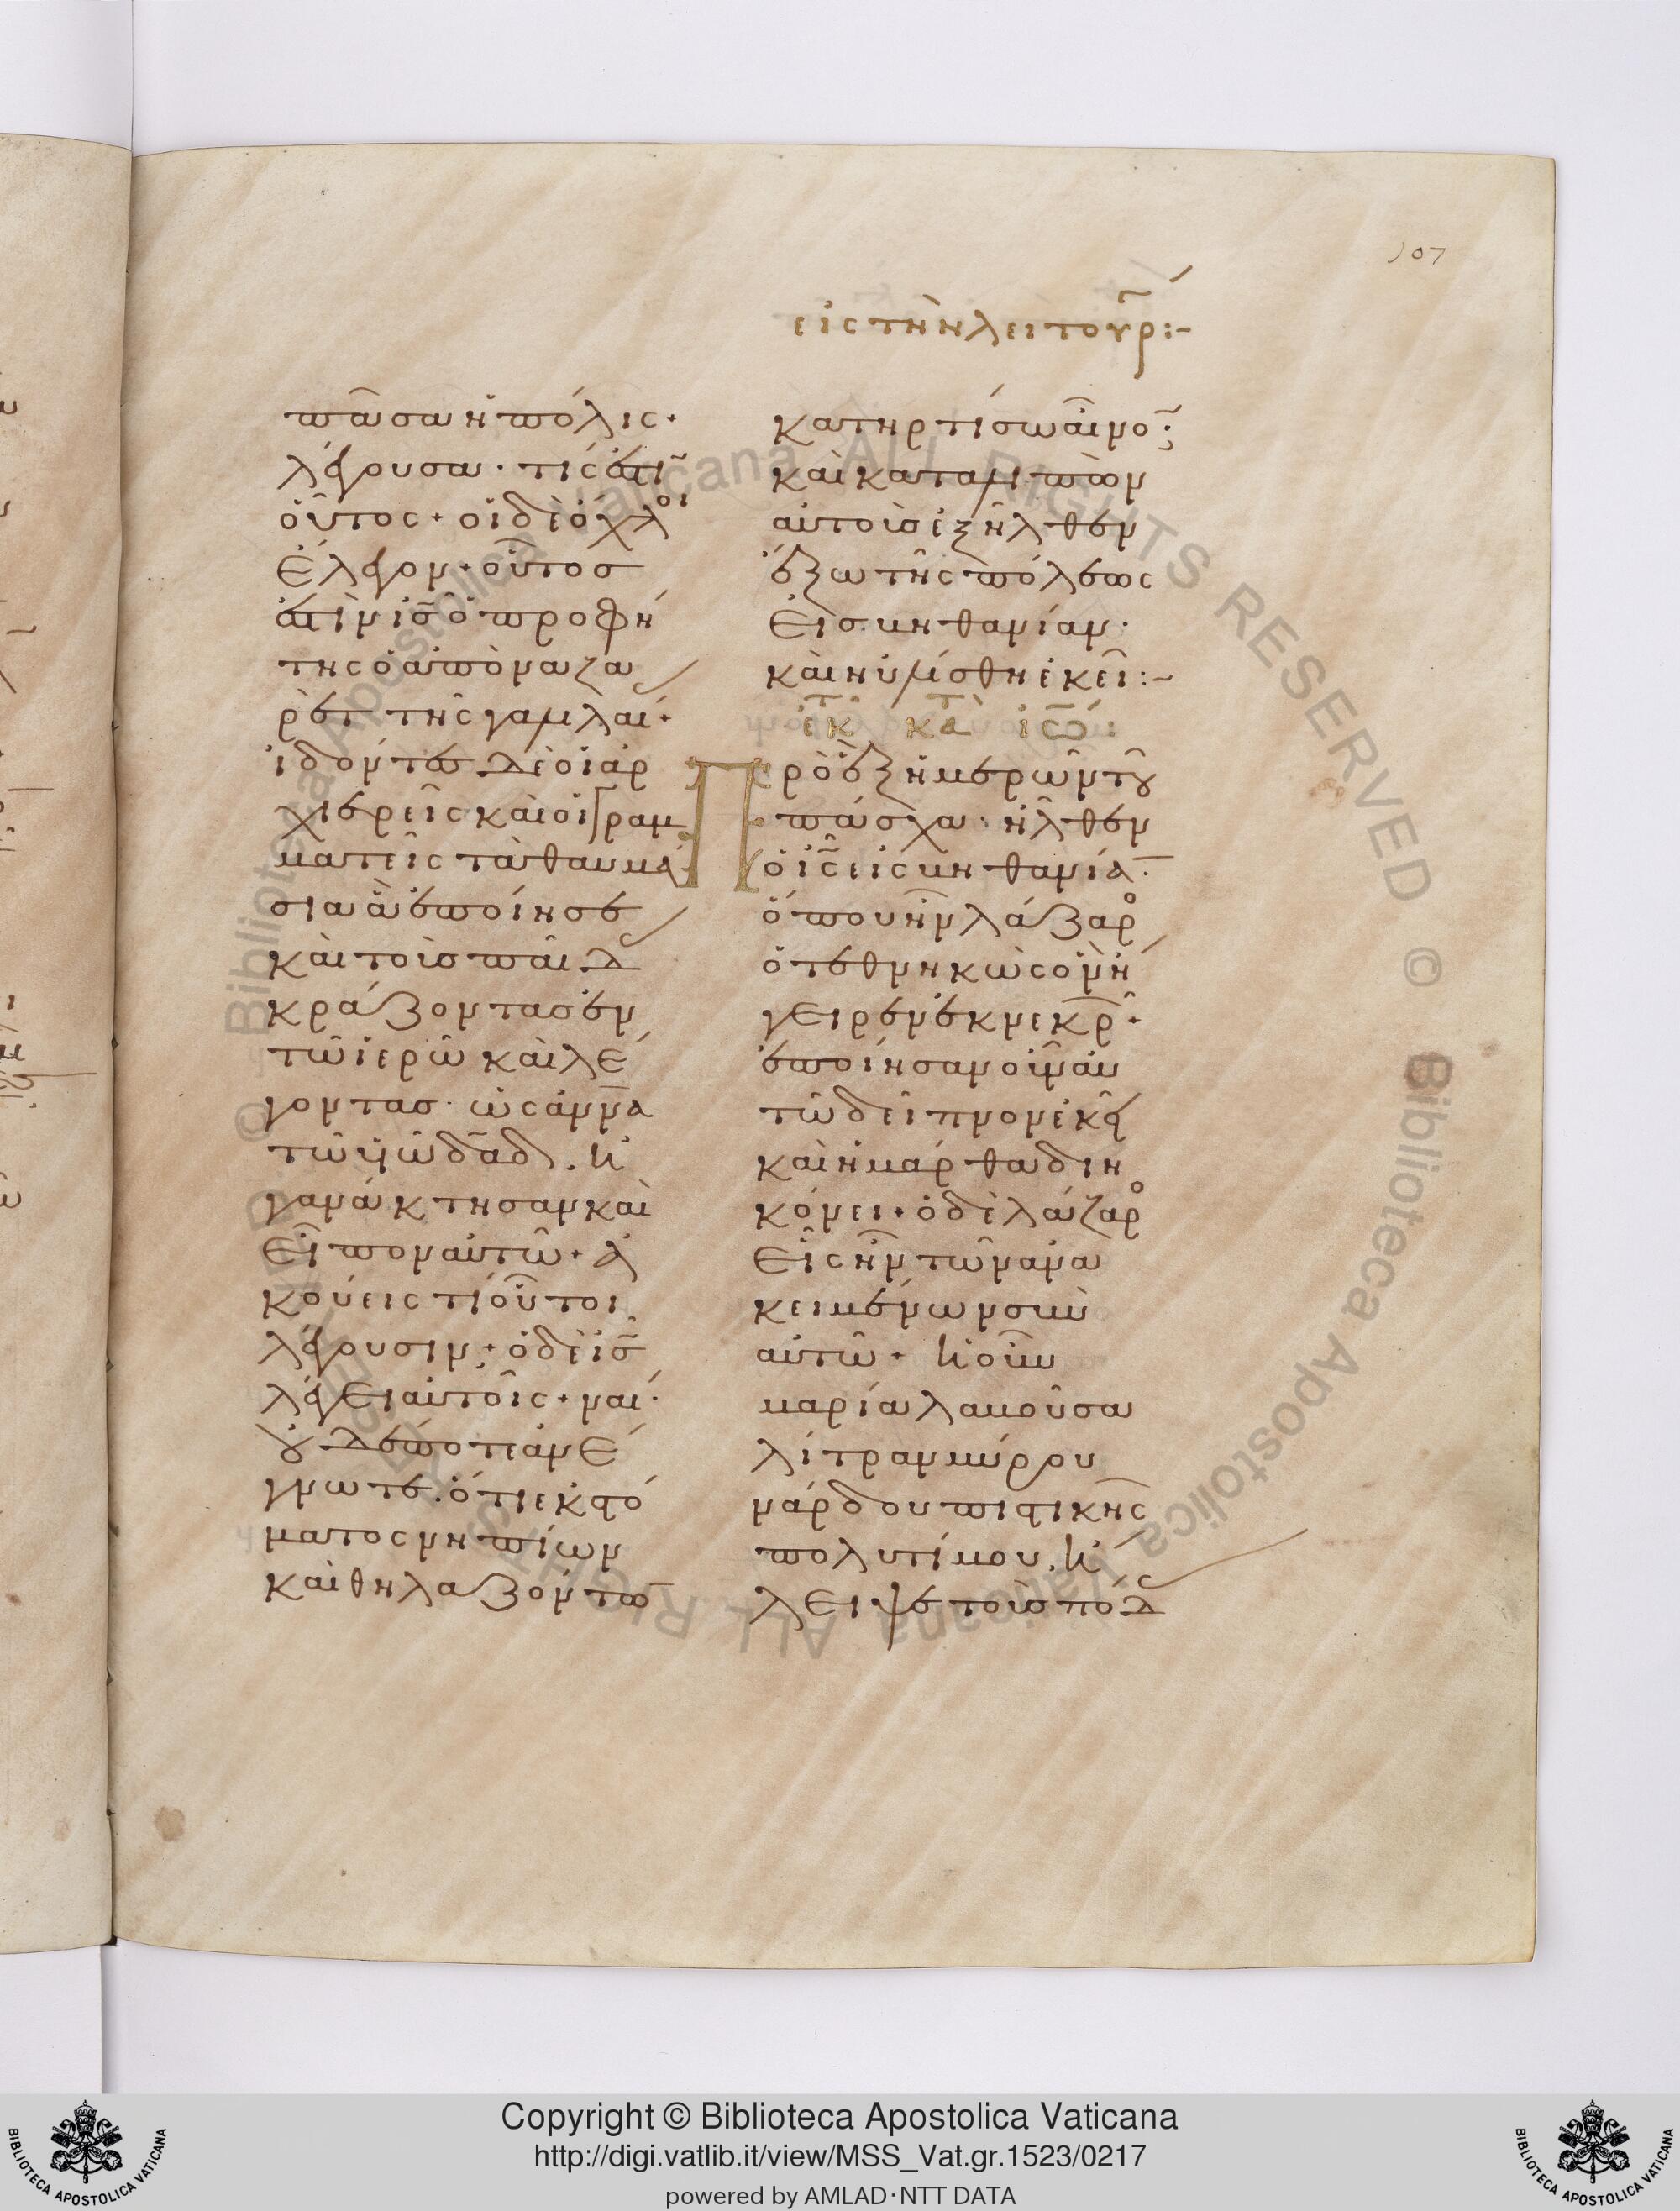 107
εἰς τὴν λειτουρ:~
πᾶσα ἡ πόλις·
λέγουσα· τίς ἐστῖ
οὗτος· οἱ δὲ ὄχλοι
ἔλεγον· οὗτος
ἐστὶν ἰς ὁ προφή
της ὁ ἀπὸ ναζα
ρὲτ τῆς γαλιλαί·
ἰδόντες δὲ οἱ ἀρ
χιερεῖς καὶ οἱ γραμ
ματεῖς τὰ θαυμά
σια ἃ ἐποίησε
καὶ τοὺς παῖδ
κράζοντας ἐν
τῶ ἱερῶ καὶ λέ
γοντας· ὡσαννὰ
τῶ υἱῶ δαδ. κ
γανάκτησαν καὶ
εἶπον αὐτῶ· ἀ
κούεις τί οὗτοι
λέγουσιν· ὁ δὲ ἰς
λέγει αὐτοῖς· ναί·
οὐδέποτε ἀνέ
γνωτε. ὅτι ἐκ στό
ματος νηπίων
καὶ θηλαζόντω
κατηρτίσω αἶνο·
καὶ καταλιπὼν
αὐτοὺς ἐξῆλθεν
ἔξω τῆς πόλεως
εἰς βηθανίαν·
καὶ ηὐλίσθη ἐκεῖ:~
ἐκ κατ ἰω:
Πρὸ ἓξ ἡμερῶν τοῦ
πάσχα· ἦλθεν
ὁ ἰς εἰς βηθανία·
ὅπου ἦν λάζαρο
ὁ τεθνηκὼς ὃν ἤ
γειρεν ἐκ νεκρ·
ἐποίησαν οὖν αὐ
τῶ δεῖπνον ἐκεῖ
καὶ ἡ μάρθα διη
κόνει· ὁ δὲ λάζαρο
εἷς ἦν τῶν ἀνα
κειμένων σὺν
αὐτῶ· ἡ οὖν
μαρία λαβοῦσα
λίτραν μύρου
νάρδου πιστικῆς
πολυτίμου. ἤ
λειψε τοὺς πόδ
Copyright © Biblioteca Apostolica Vaticana
http://digi.vatlib.it/view/MSS_Vat.gr.1523/0217
powered by AMLAD·NTT DATA